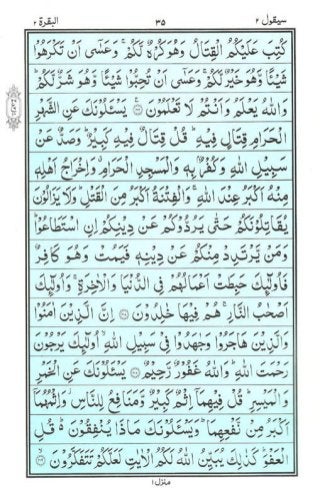 سيقول ٢ ٣٥ البقرة ٢
كُتِبَ عَلَيْكُمُ الْقِتَالُ وَهُوَ كُرْهٌ لَّكُمْ ۚ وَعَسٰٓى اَنْ تَكْرَهُوْا
شَيْـًٔا وَّهُوَ خَيْرٌ لَّكُمْ ۚ وَعَسٰٓى اَنْ تُحِبُّوْا شَيْـًٔا وَّهُوَ شَرٌّ لَّكُمْ ؕ
وَاللّٰهُ يَعْلَمُ وَاَنْتُمْ لَا تَعْلَمُوْنَ ۝ يَسْـَٔلُوْنَكَ عَنِ الشَّهْرِ
الْحَرَامِ قِتَالٍ فِيْهِ ؕ قُلْ قِتَالٌ فِيْهِ كَبِيْرٌ ؕ وَصَدٌّ عَنْ
سَبِيْلِ اللّٰهِ وَكُفْرٌۢ بِهٖ وَالْمَسْجِدِ الْحَرَامِ ۗ وَاِخْرَاجُ اَهْلِهٖ
مِنْهُ اَكْبَرُ عِنْدَ اللّٰهِ ۚ وَالْفِتْنَةُ اَكْبَرُ مِنَ الْقَتْلِ ؕ وَلَا يَزَالُوْنَ
يُقَاتِلُوْنَكُمْ حَتّٰى يَرُدُّوْكُمْ عَنْ دِيْنِكُمْ اِنِ اسْتَطَاعُوْا ؕ
وَمَنْ يَّرْتَدِدْ مِنْكُمْ عَنْ دِيْنِهٖ فَيَمُتْ وَهُوَ كَافِرٌ
فَاُولٰٓئِكَ حَبِطَتْ اَعْمَالُهُمْ فِى الدُّنْيَا وَالْاٰخِرَةِ ۚ وَاُولٰٓئِكَ
اَصْحٰبُ النَّارِ ۚ هُمْ فِيْهَا خٰلِدُوْنَ ۝ اِنَّ الَّذِيْنَ اٰمَنُوْا
وَالَّذِيْنَ هَاجَرُوْا وَجٰهَدُوْا فِىْ سَبِيْلِ اللّٰهِ ۙ اُولٰٓئِكَ يَرْجُوْنَ
رَحْمَتَ اللّٰهِ ؕ وَاللّٰهُ غَفُوْرٌ رَّحِيْمٌ ۝ يَسْـَٔلُوْنَكَ عَنِ الْخَمْرِ
وَالْمَيْسِرِ ؕ قُلْ فِيْهِمَآ اِثْمٌ كَبِيْرٌ وَّمَنَافِعُ لِلنَّاسِ ۫ وَاِثْمُهُمَآ
اَكْبَرُ مِنْ نَّفْعِهِمَا ؕ وَيَسْـَٔلُوْنَكَ مَاذَا يُنْفِقُوْنَ ۬ؕ قُلِ
الْعَفْوَ ؕ كَذٰلِكَ يُبَيِّنُ اللّٰهُ لَكُمُ الْاٰيٰتِ لَعَلَّكُمْ تَتَفَكَّرُوْنَ ۝
منزل ١